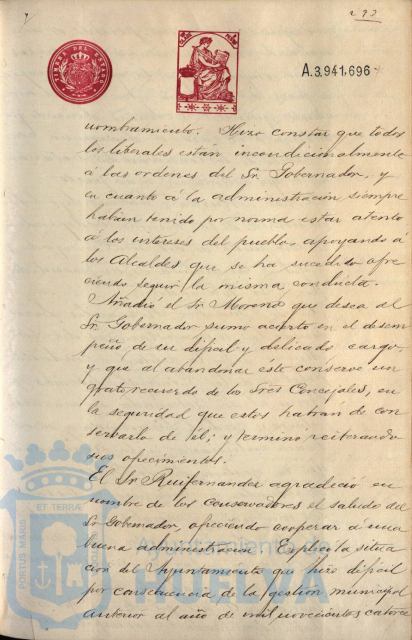 293
TIMBRE DEL ESTADO
A.3.941,696
nombramiento. Hizo constar que todos
los liberales están incondicionalmente
á las ordenes del Sr. Gobernador, y
en cuanto á la administracion siempre
habian tenido por norma estar atento
á los intereses del pueblo, apoyando á
los Alcaldes que se ha sucedido ofre
ciendo seguir la misma conducta.
Añadió el Sr. Moreno que desea al
Sr. Gobernador sumo acierto en el desem
peño de su dificil y delicado cargo,
y que al abandonar éste conserve un
grato recuerdo de los Sres Concejales, en
la seguridad que estos habran de con
servarlo de él; y terminó reiterando
sus ofrecimientos.
El Sr. Ruifernandez agradeció en
nombre de los conservadores el saludo del
Sr. Gobernador, ofreciendo cooperar á una
buena administracion. Explicó la situa
cion del Ayuntamiento que hizo dificil
por consecuencia de la gestion municipal
anterior al año de mil novecientos catorce
PORTUS MARIS ET TERRÆ
Ayuntamiento de
HUELVA